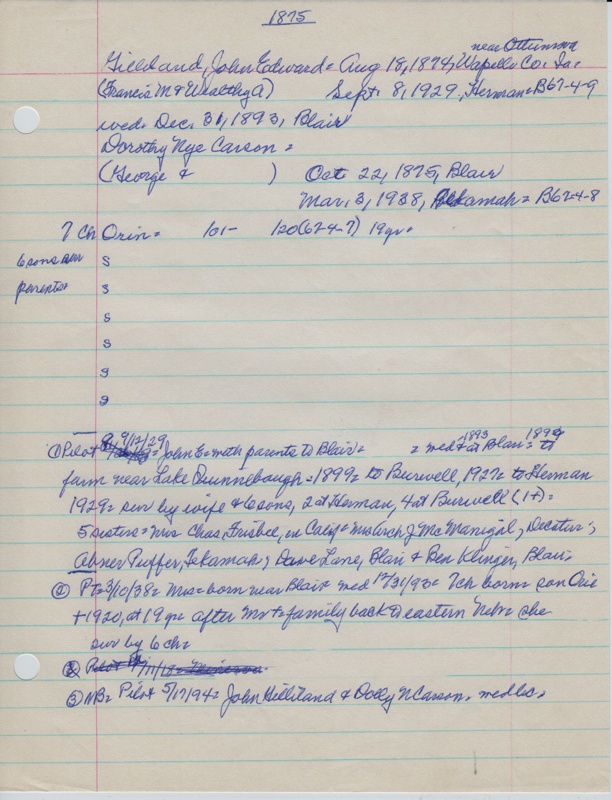 1875
near Ottumwa
Gilliland, John Edward = Aug 18, 1874, Wapello Co. Ia.
(Francis M & Wealthy A) Sept. 8, 1929, Herman = B67-4-9
wed. Dec. 31, 1893, Blair
Dorothy Nye Carson =
(George & ) Oct 22, 1875, Blair
Mar. 3, 1938, Tekamah = B67-4-8
7 Ch Orin = 101- 120 (67-4-7) 19 yr.
6 sons sur S
parents S
S
S
S
S
① Pilot 9/12/29 = John E = with parents to Blair = = wed 1893 at Blair = 1894 to
farm near Lake Quinnebaugh = 1899 = to Burwell, 1927 = to Herman
1929 = sur by wife & 6 sons, 2 at Herman, 4 at Burwell (1+) =
5 sisters = Mrs Chas. Frisbee, in Calif = Mrs Arch J. McManigal, Decatur;
Abner Puffer, Tekamah; Dave Lane, Blair & Ben Klinger, Blair.
② PT = 3/10/38 = Mrs = born near Blair = wed 12/31/93 = 7 ch born = son Orie
+ 1920, at 19 yr = after Mr + = family back to eastern Nebr = she
sur by 6 ch =
③ NB = Pilot 5/17/94 = John Gilliland & Dolly N Carson, wed lic.